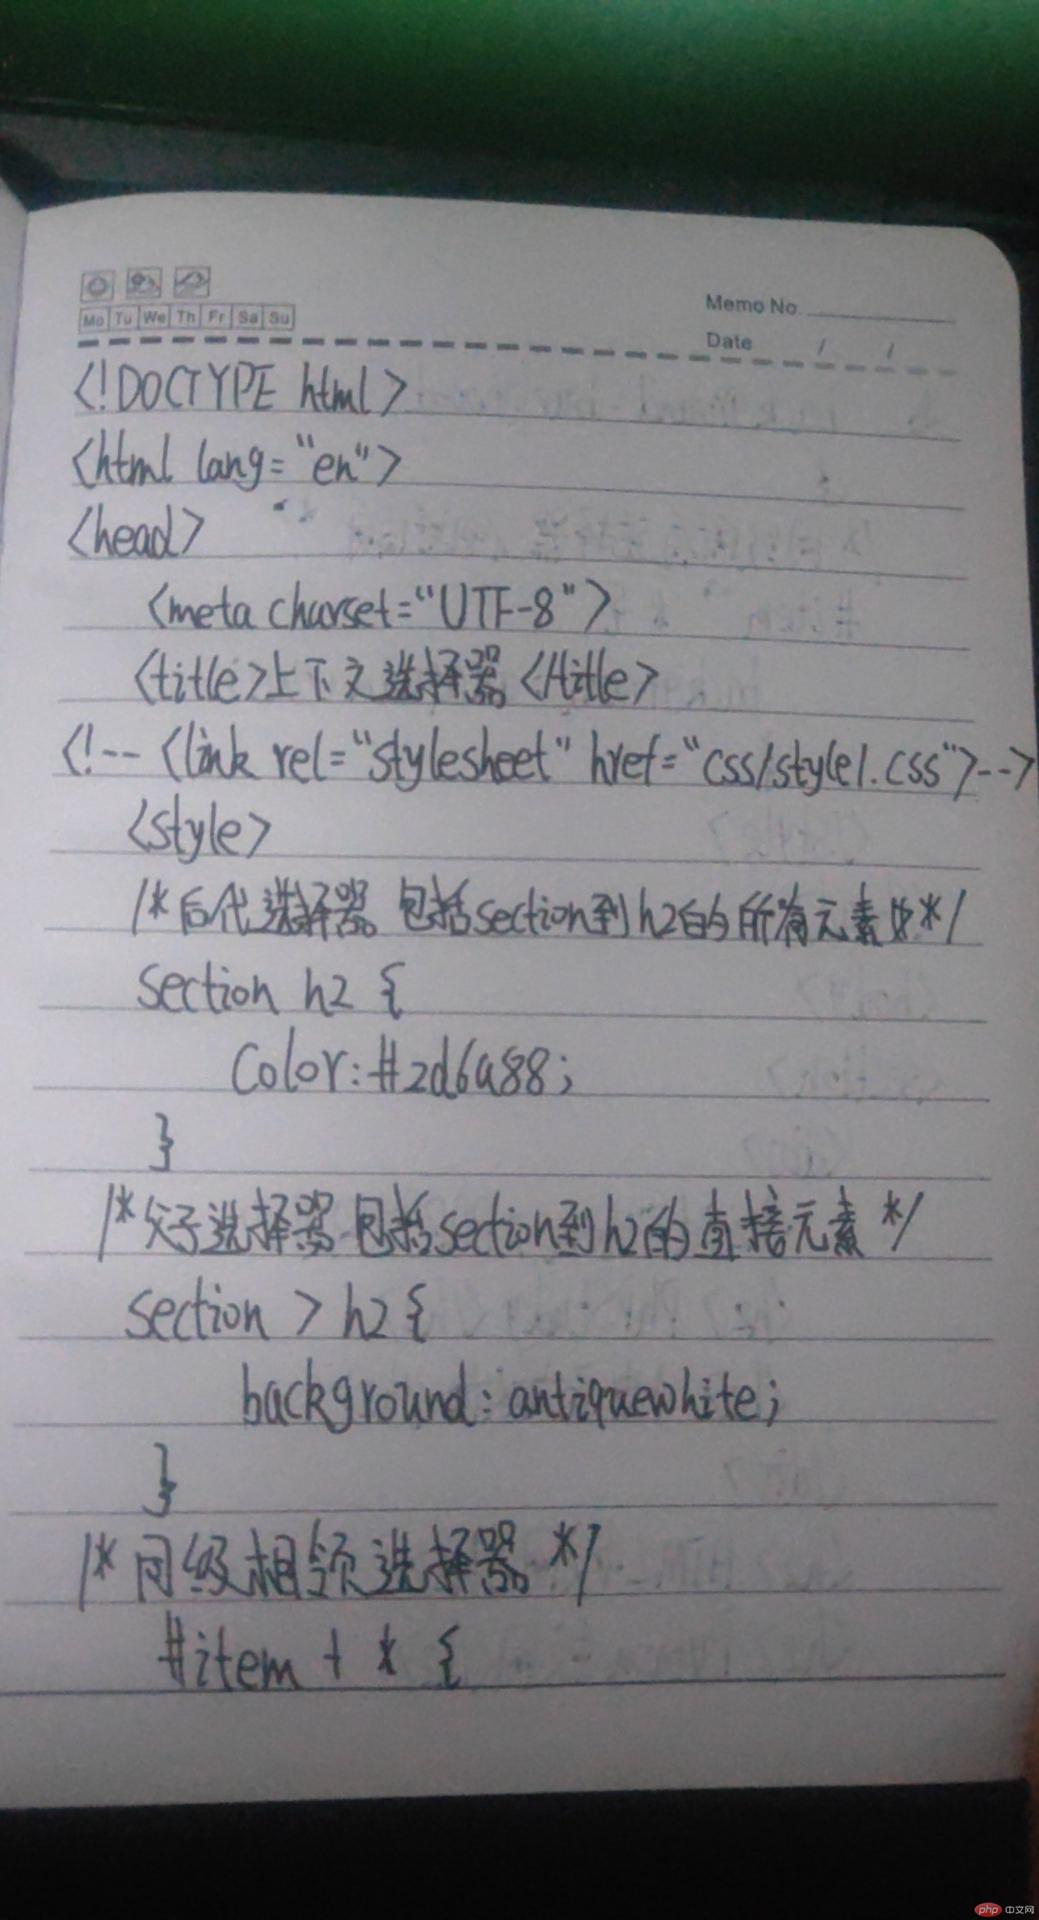 Mo Tu We Th Fr Sa Su
Memo No.
Date / /
<!DOCTYPE html>
<html lang="en">
<head>
<meta charset="UTF-8">
<title>上下文选择器</title>
<!-- <link rel="stylesheet" href="css/style1.css">-->
<style>
/*后代选择器 包括section到h2的所有元素*/
section h2 {
Color:#2d6a88;
}
/*父子选择器 包括section到h2的直接元素 */
section > h2 {
background: antiquewhite;
}
/* 同级相领选择器 */
#item + * {
php 中文网